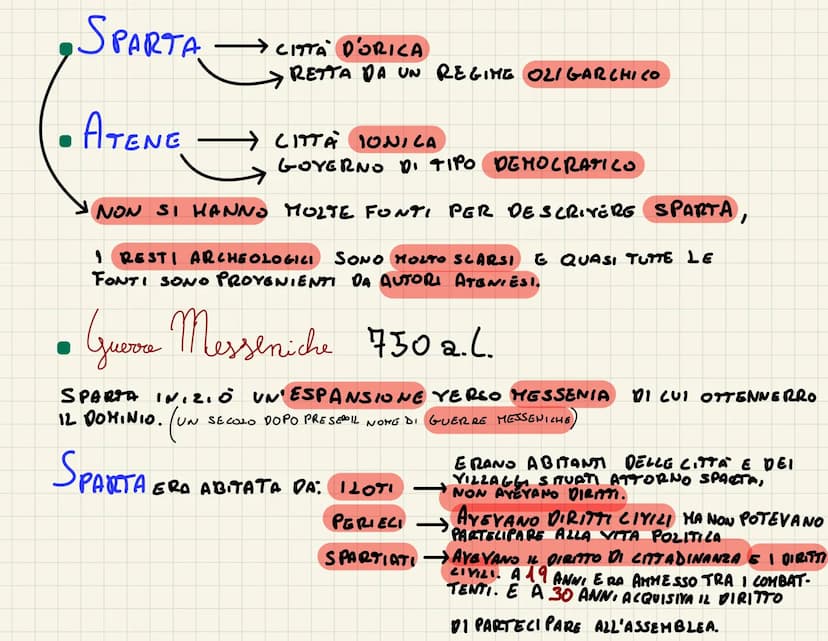 SPARTA → CITTÀ D'ORICA
RETTA DA UN REGIME OLIGARCHICO
ATENE → CITTÀ IONICA
GOVERNO DI TIPO DEMOCRATICO
NON SI HANNO MOLTE FONTI PER DESCRIVERE SPARTA,
I RESTI ARCHEOLOGICI SONO MOLTO SCARSI E QUASI TUTTE LE
FONTI SONO PROVENIENTI DA AUTORI ATENIESI.
Guerre Messeniche 750 a.C.
SPARTA INIZIÒ UN'ESPANSIONE VERSO MESSENIA DI CUI OTTENNERRO
IL DOMINIO. (UN SECOLO DOPO PRESE IL NOME DI GUERRE MESSENICHE)
SPARTA ERA ABITATA DA: ILOTI → ERANO ABITANTI DELLE CITTÀ E DEI
VILLAGGI SITUATI ATTORNO SPARTA,
NON AVEVANO DIRITTI.
PERIECI → AVEVANO DIRITTI CIVILI MA NON POTEVANO
PARTECIPARE ALLA VITA POLITICA
SPARTIATI → AVEVANO IL DIRITTO DI CITTADINANZA E I DIRITTI
CIVILI. A 19 ANNI ERA AMMESSO TRA I COMBAT-
TENTI. E A 30 ANNI ACQUISIVA IL DIRITTO
DI PARTECIPARE ALL'ASSEMBLEA.